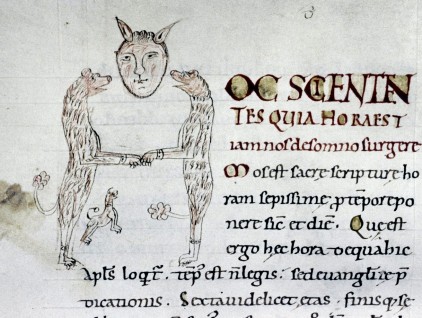 OC SCIENTES
TES QUIA HORA EST
iam nos de somno surgere
Mos est sacre scripture ho
ram sepissime p tempore po
nere sic et dicm. Que est
ergo hec hora de qua hic
apls loqtr. temp est n legis. sed evangelii et p
dicationis. Sexta videlicet etas. finis q; se